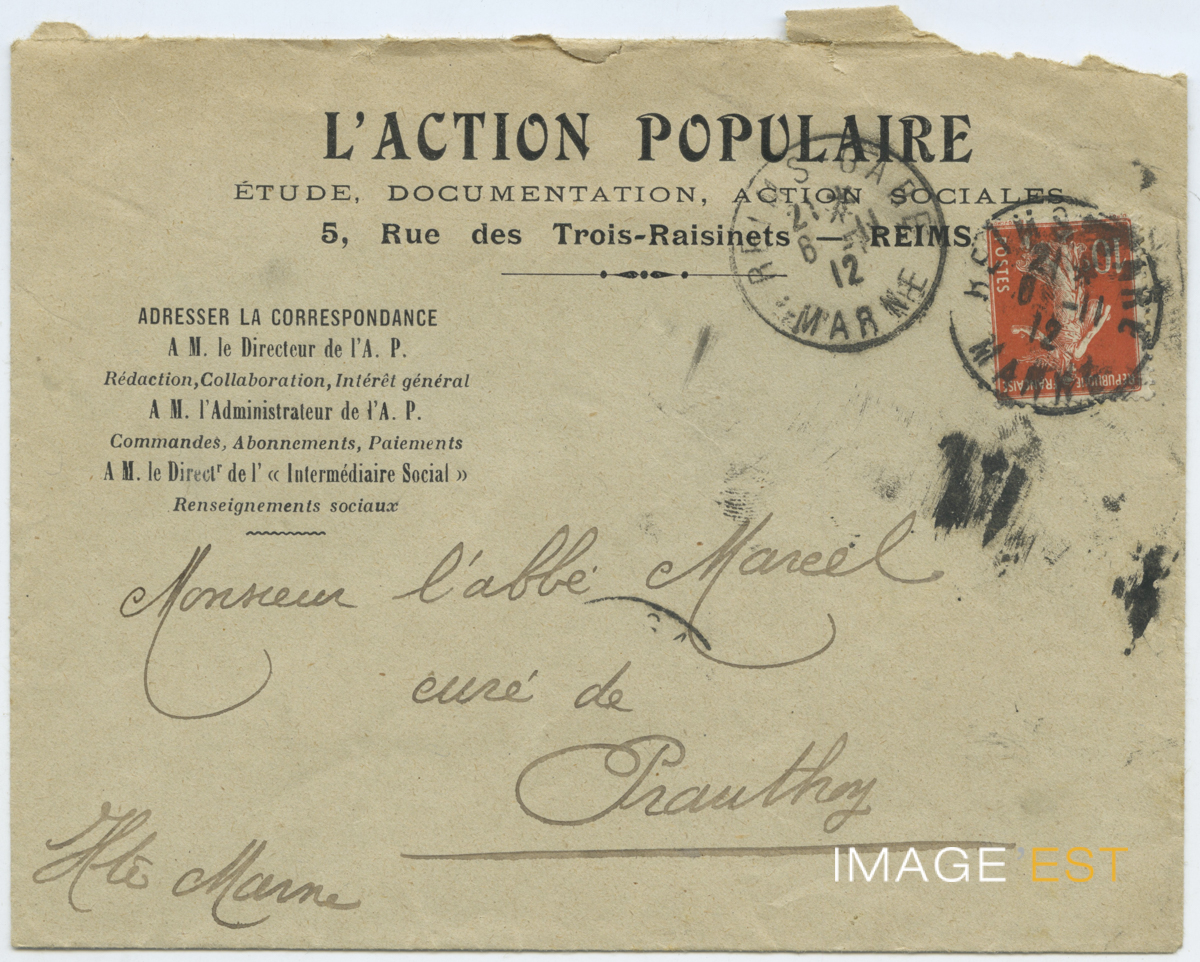 L'ACTION POPULAIRE
ÉTUDE, DOCUMENTATION, ACTION SOCIALES
5, Rue des Trois-Raisinets — REIMS
ADRESSER LA CORRESPONDANCE
A M. le Directeur de l'A. P.
Rédaction, Collaboration, Intérêt général
A M. l'Administrateur de l'A. P.
Commandes, Abonnements, Paiements
A M. le Directr de l' « Intermédiaire Social »
Renseignements sociaux
REIMS GARE
21
6 -11
12
MARNE
REIMS GARE
21
6 -11
12
MARNE
10
POSTES
REPUBLIQUE FRANÇAISE
Monsieur l'abbé Marcel
curé de
Prauthoy
Hte Marne
IMAGE'EST